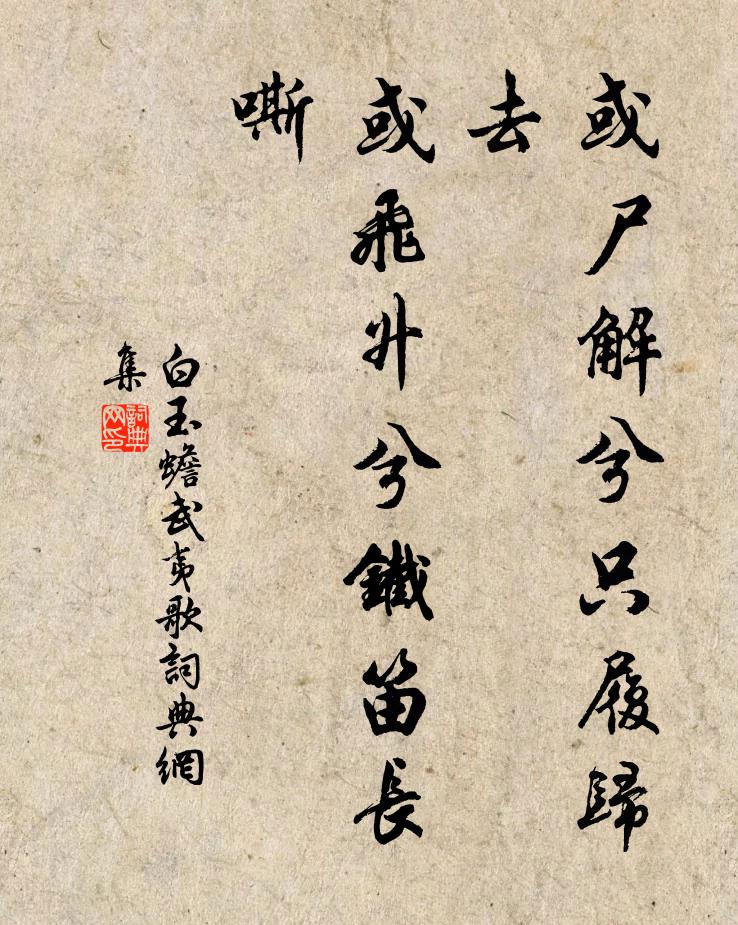 或尸解兮只履歸
去
或飛升兮鐵笛長
嘶
白玉蟾武夷歌詞典網
集
詞典網印